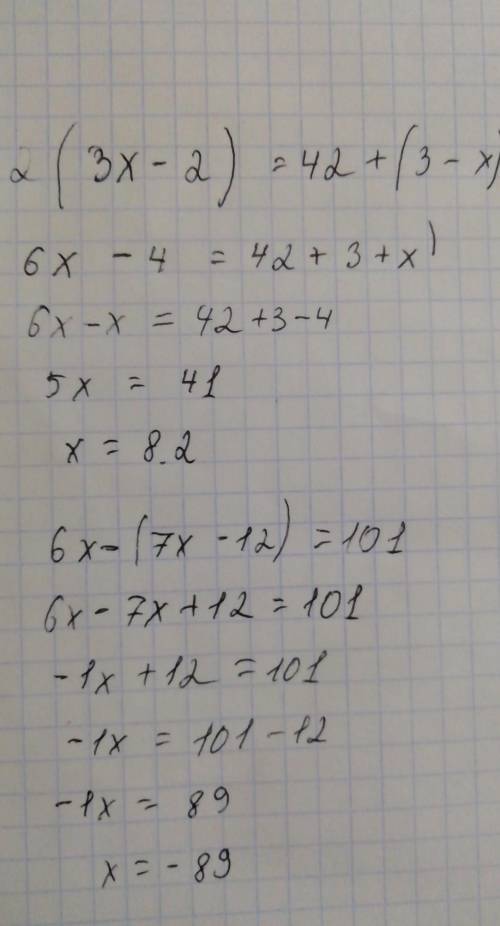 2(3x - 2) = 42 + (3 - x)
6x - 4 = 42 + 3 + x)
6x - x = 42 + 3 - 4
5x = 41
x = 8.2
6x - (7x - 12) = 101
6x - 7x + 12 = 101
-1x + 12 = 101
-1x = 101 - 12
-1x = 89
x = - 89